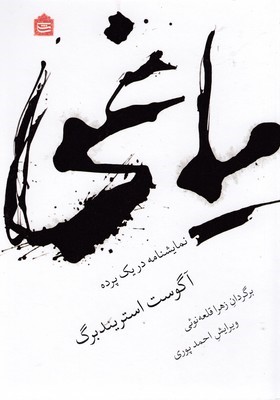 یاغی
نمایشنامه در یک پرده
آگوست استریندبرگ
برگردان زهرا قلعه‌نوئی
ویرایش احمد پوری